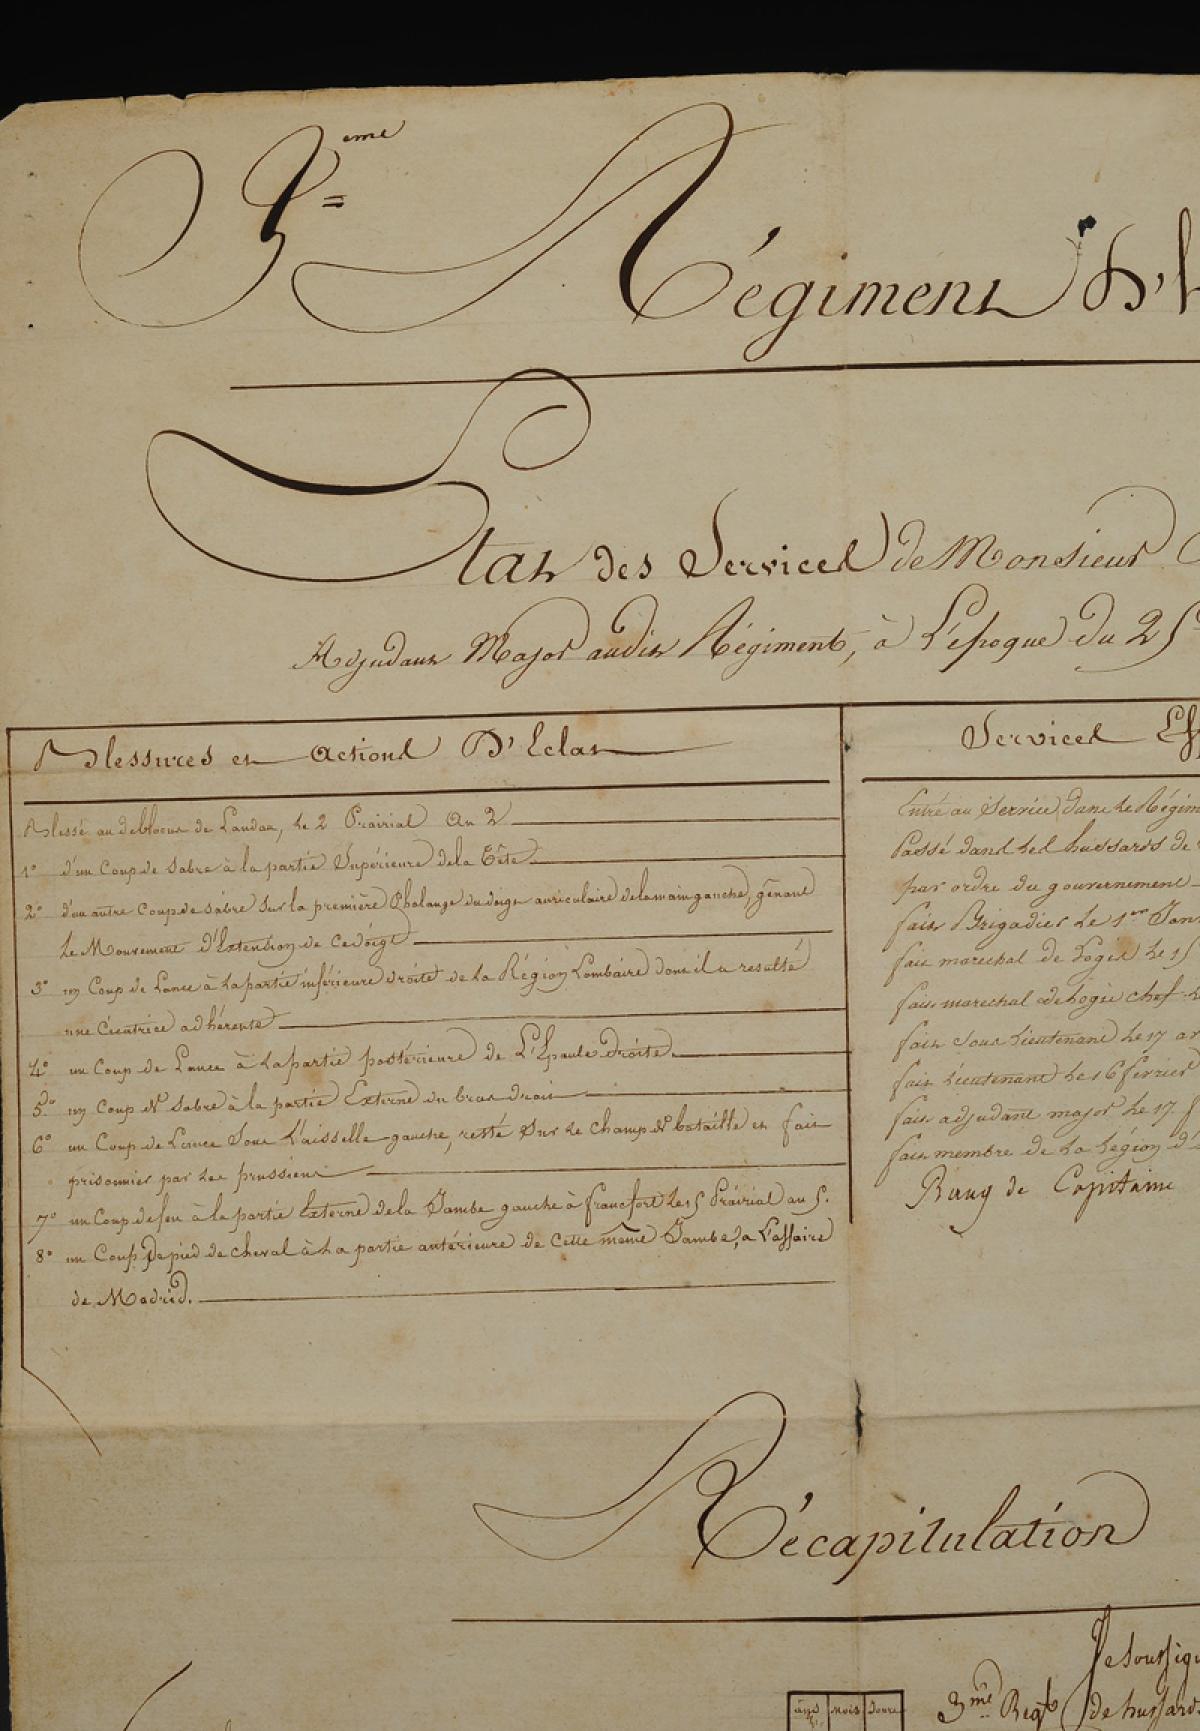 3eme = Régiment d'h
Etat des Services de Monsieur
Adjudant Major audit Régiment, à L'époque du 25
Blessures et actions D'Eclat
Blessé au deblocus de Landau, Le 2 Prairial An 2
1° d'un Coup de Sabre à la partie Supérieure de la Tête
2° d'un autre Coup de Sabre Sur la première Phalange du doigt auriculaire de la main gauche, gênant
Le Mouvement d'Extension de ce doigt
3° un Coup de Lance à La partie inférieure droite de La Région Lombaire dont il a résulté
une Cicatrice adhérente
4° un Coup de Lance à La partie postérieure de L'Epaule droite.
5° un Coup de Sabre à la partie Externe du bras droit
6° un Coup de Lance Sous L'aisselle gauche, resté Sur Le Champ de bataille et fait
prisonnier par Les prussiens
7° un Coup de feu à la partie Externe de la Jambe gauche à francfort Le 15 Prairial an 5.
8° un Coup De pied de cheval à La partie antérieure de cette même Jambe, a L'affaire
de Madrid.
Services Eff
Entré au Service dans Le Régim
Passé dans Les hussards de
par ordre du gouvernement
fait Brigadier Le 1er Jan
fait marechal de Logis Le 15
fait marechal de Logis chef L
fait Sous Lieutenant Le 17
fait Lieutenant Le 16 fevrier
fait adjudant major Le 17 f
fait membre de La Légion d'
Rang de Capitaine
Récapitulation
Je Soussign
ans mois Jours
3me Regt de hussard